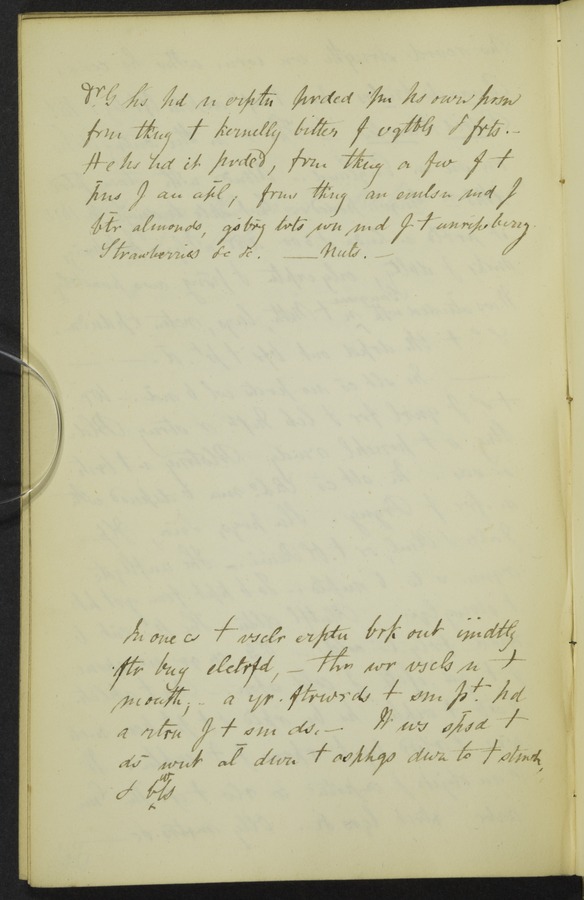 Dr. G hs hd n erptn prded fm hs own prsn
frm tkng t kernelly bitter f vgtbls & frts.-
He hs hd it prded, frm tkng a few f t
pns f an apl, frm tkng an emlsn md f
btr almonds, gsbrry trts wn md f t unripe berry
Strawberries &c &c. — Nuts. —
In one cs t vsclr erptn brk out imdtly
ftr bng eletrfd, - thr wr vscls n t
mouth; - a yr. ftrwrds t sm pt. hd
a rtrn f t sm ds. - It ws spsd t
ds wnt al dwn t osphgs dwn to t stmch,
& bls